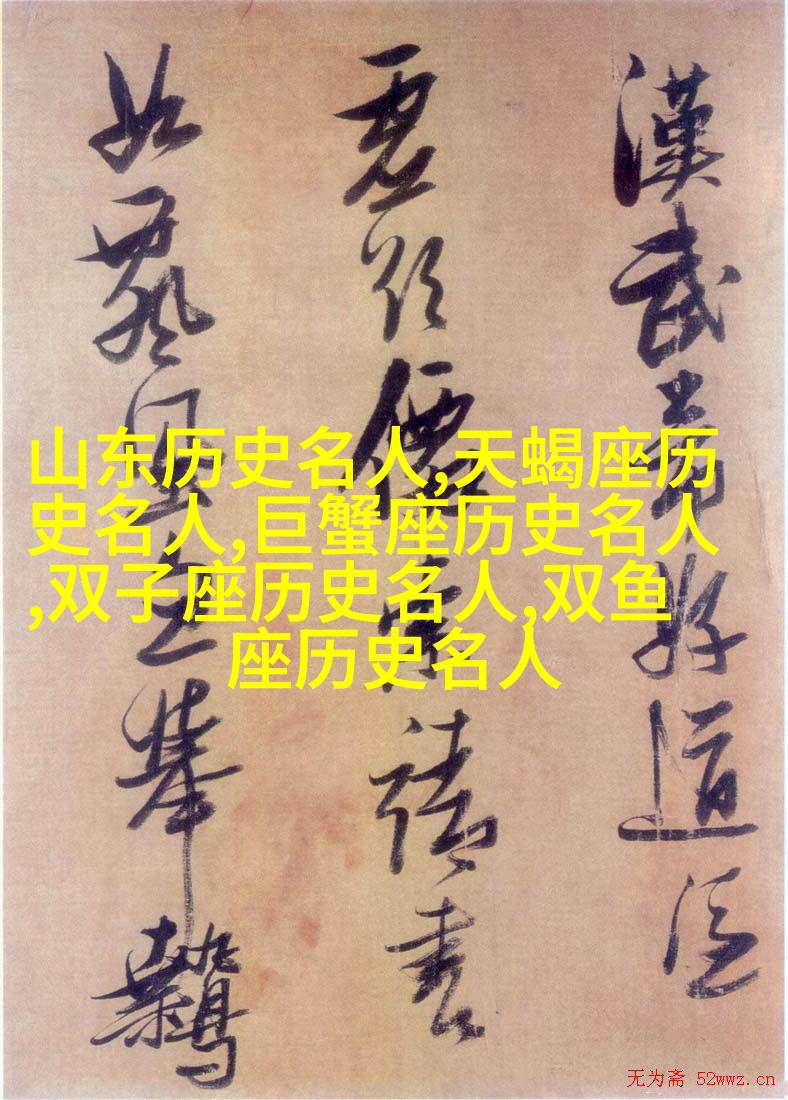 漢武帝好道
虚欲僊索靖書
如飄風忽舉鷙
山东历史名人,天蝎座历
史名人,巨蟹座历史名人
,双子座历史名人,双鱼
座历史名人
无为斋 52wwz.cn